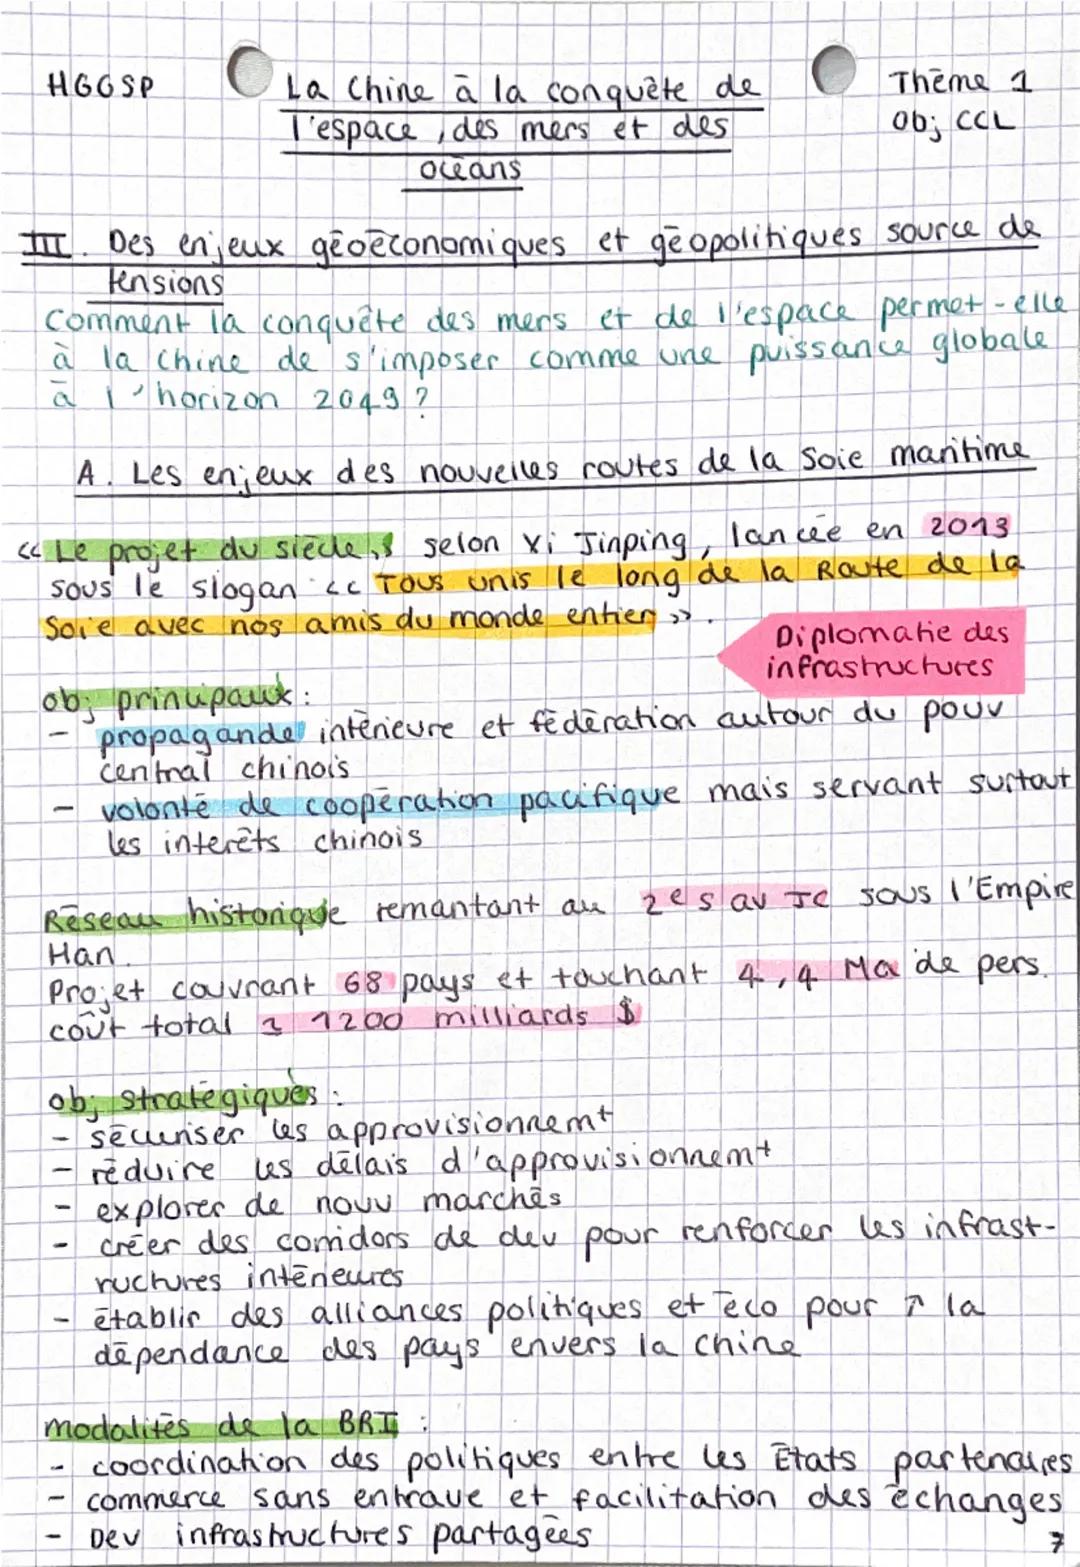 HGGSP
La Chine à la conquête de
l'espace, des mers et des
océans
Thème 1
Obj CCL
III. Des enjeux géoéconomiques et géopolitiques source de
tensions
Comment la conquête des mers et de l'espace permet-elle
à la Chine de s'imposer comme une puissance globale
à l'horizon 2049 ?
A. Les enjeux des nouvelles routes de la Soie maritime
« Le projet du siècle » selon Xi Jinping, lancée en 2013
sous le slogan « Tous unis le long de la Route de la
Soie avec nos amis du monde entier ».
Diplomatie des
infrastructures
obj principaux :
- propagande intérieure et fédération autour du pouv
central chinois
- volonté de coopération pacifique mais servant surtout
les interêts chinois
Réseau historique remontant au 2e s av JC sous l'Empire
Han.
Projet couvrant 68 pays et touchant 4,4 Ma de pers.
coût total 1200 milliards $
obj stratégiques :
- sécuriser les approvisionnemt
- réduire les délais d'approvisionnemt
- explorer de nouv marchés
- créer des corridors de dev pour renforcer les infrast-
ructures intérieures
- établir des alliances politiques et éco pour ↗ la
dépendance des pays envers la Chine
modalités de la BRI :
- coordination des politiques entre les États partenaires
- commerce sans entrave et facilitation des échanges
- Dev infrastructures partagées
7